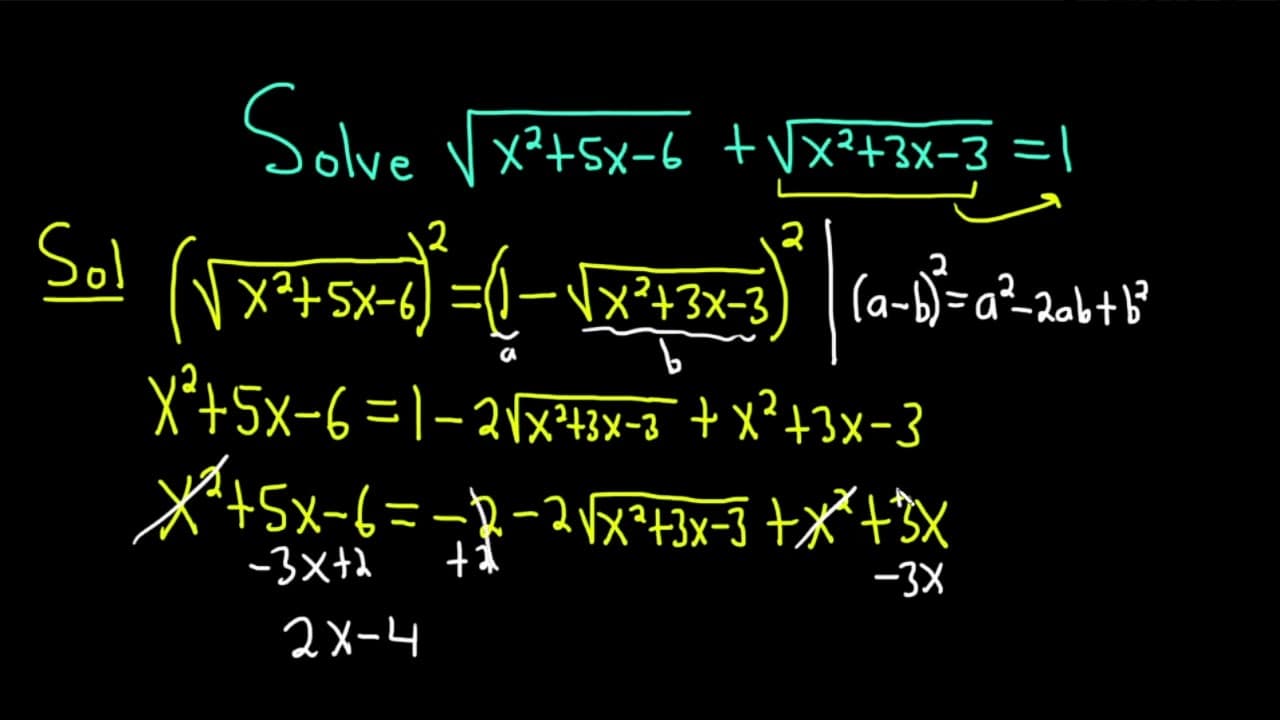 Solve √(x²+5x-6) + √(x²+3x-3) = 1
Sol (√(x²+5x-6))² = (1 - √(x²+3x-3))² | (a-b)² = a²-2ab+b²
a b
x²+5x-6 = 1 - 2√(x²+3x-3) + x²+3x-3
x²+5x-6 = -2 - 2√(x²+3x-3) + x² + 3x
-3x+2 +2 -3x
2x-4